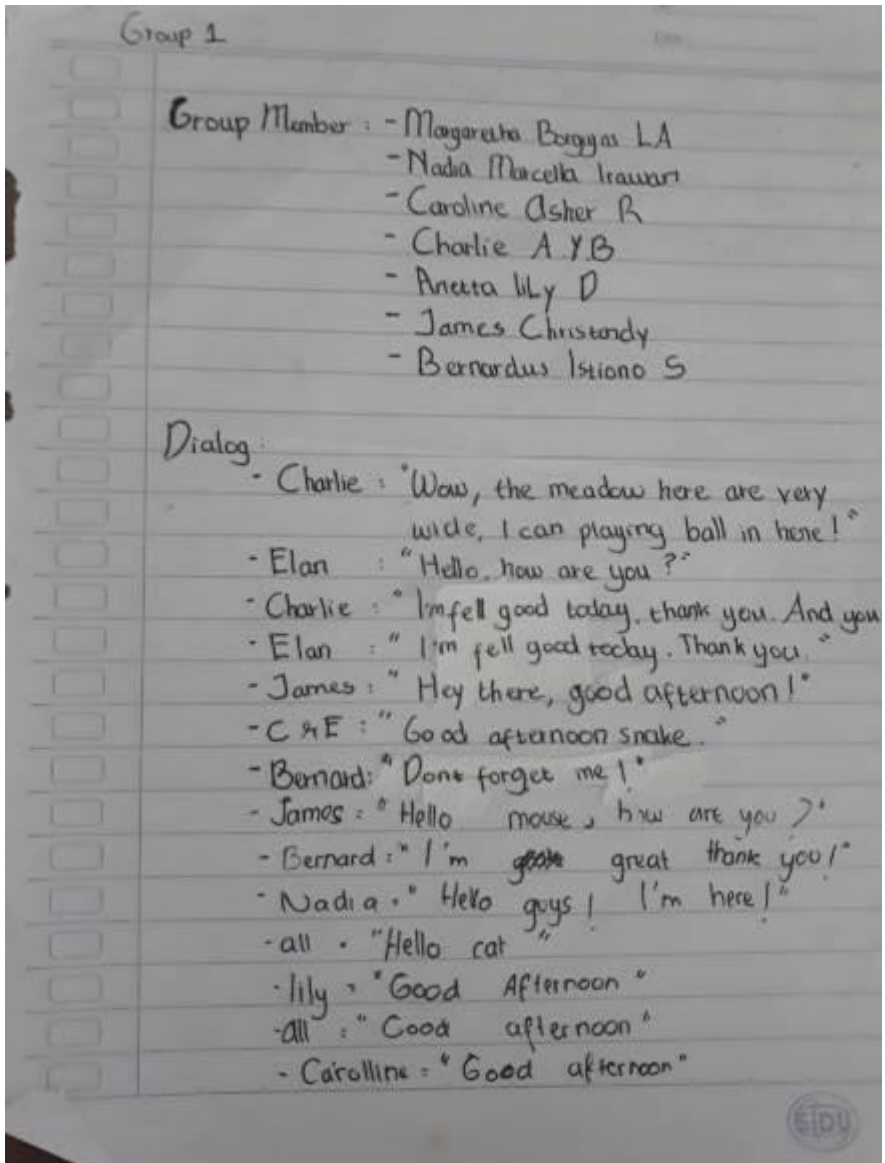 Group 1
Group Member : - Margaretha Borgyas LA
- Nadia Marcella Irawan
- Caroline Asher R
- Charlie A Y B
- Anetta liLy D
- James Christandy
- Bernardus Istiono S
Dialog :
- Charlie : "Wow, the meadow here are very
wide, I can playing ball in here!"
- Elan : "Hello, how are you ?"
- Charlie : "I'm fell good today, thank you. And you
- Elan : "I'm fell good today. Thank you."
- James : "Hey there, good afternoon!"
- C & E : "Good afternoon snake."
- Bernard : "Dont forget me !"
- James : "Hello mouse, how are you ?"
- Bernard : "I'm great thank you!"
- Nadia : "Hello guys! I'm here!"
- all : "Hello cat"
- lily : "Good Afternoon"
- all : "Good afternoon"
- Carolline : "Good afternoon"
SIDU